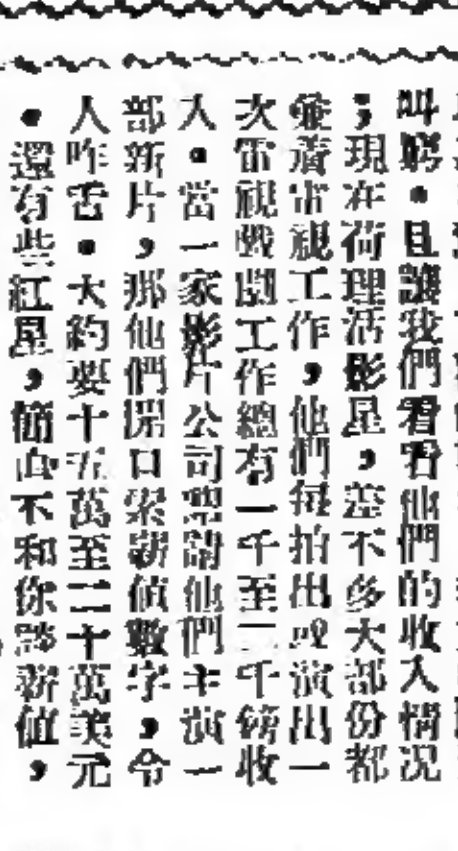 叫窮。且讓我們看看他們的收入情況
；現在荷理活影星，差不多大部份都
兼着電視工作，他們每拍出或演出一
次電視戲劇工作總有一千至二千鎊收
入。當一家影片公司聘請他們主演一
部新片，那他們開口索薪值數字，令
人咋舌。大約要十五萬至二十萬美元
。還有些紅星，簡直不和你談薪值，